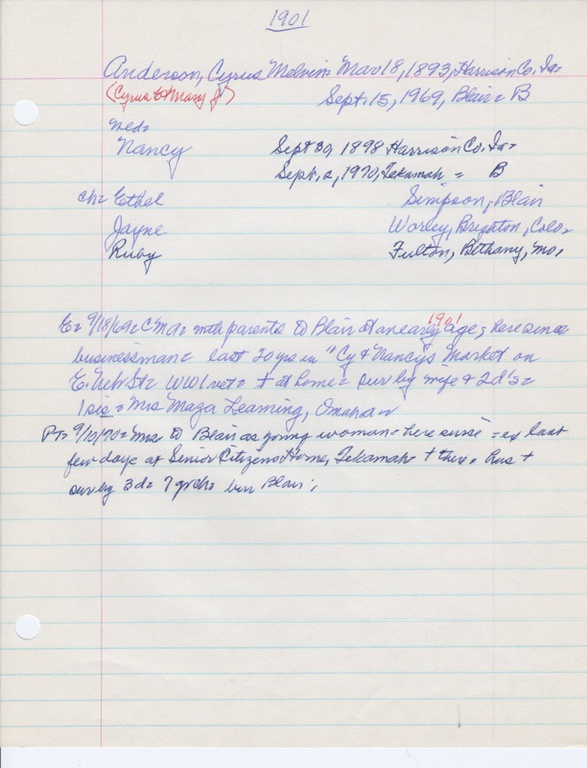 1901
Anderson, Cyrus Melvin= Mar 18, 1893, Harrison Co. Ia=
(Cyrus & Mary J) Sept. 15, 1969, Blair= B
Med=
Nancy Sept 30, 1898 Harrison Co. Ia=
Sept. 2, 1970, Tekamah = B
ch= Ethel Simpson, Blair
Jayne Worley, Brighton, Colo=
Ruby Fulton, Bethany, Mo,
1901
E= 9/18/69= C M a= with parents to Blair at an early age; here since
businessman= last 20 yrs in "Cy & Nancy's Market on
E. Neb St= WW1 vet= + at home= sur by wife & 2 d's=
1 sis= Mrs Maga Leaming, Omaha=
PT= 9/10/70= Mrs to Blair as young woman= here since = ex last
few days at Senior Citizens Home, Tekamah + there= Rus +
sur by 3 d= 7 grch= bur Blair;